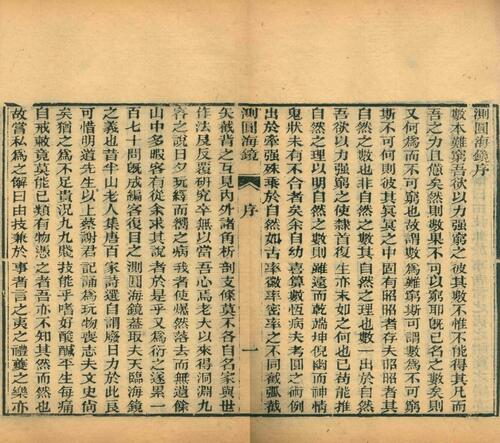 測圓海鏡序
數本難窮吾欲以力強窮之彼其數不惟不能得其凡而
吾之力且憊矣然則數果不可以窮耶既已名之數矣則
又何爲而不可窮也故謂數爲難窮斯可謂數爲不可窮
斯不可何則彼其冥冥之中固有昭昭者存夫昭昭者其
自然之數也非自然之數其自然之理也數一出於自然
吾欲以力強窮之使隸首復生亦末如之何也已苟能推
自然之理以明自然之數則雖遠而乾端坤倪幽而神情
鬼狀未有不合者矣余自幼喜算數恆病夫考圓之術例
出於牽強殊乖於自然如古率徽率密率之不同截弧截
測圓海鏡 序 一
矢截背之互見內外諸角析剖支條莫不各自名家與世
作法及反覆研究卒無以當吾心焉老大以來得洞淵九
容之說日夕玩繹而嚮之病我者使爆然落去而無遺餘
山中多暇客有從余求其說者於是乎又爲衍之遂累一
百七十問既成編客復目之測圓海鏡蓋取夫天臨海鏡
之義也昔半山老人集唐百家詩選自謂廢日力於此良
可惜明道先生以上蔡謝君記誦爲玩物喪志夫文史尙
矣猶之爲不足貴況九九賤技能乎嗜好酸鹹平生每痛
自戒敕竟莫能已類有物憑之者吾亦不知其然而然也
故嘗私爲之解曰由技兼於事者言之夷之禮夔之樂亦